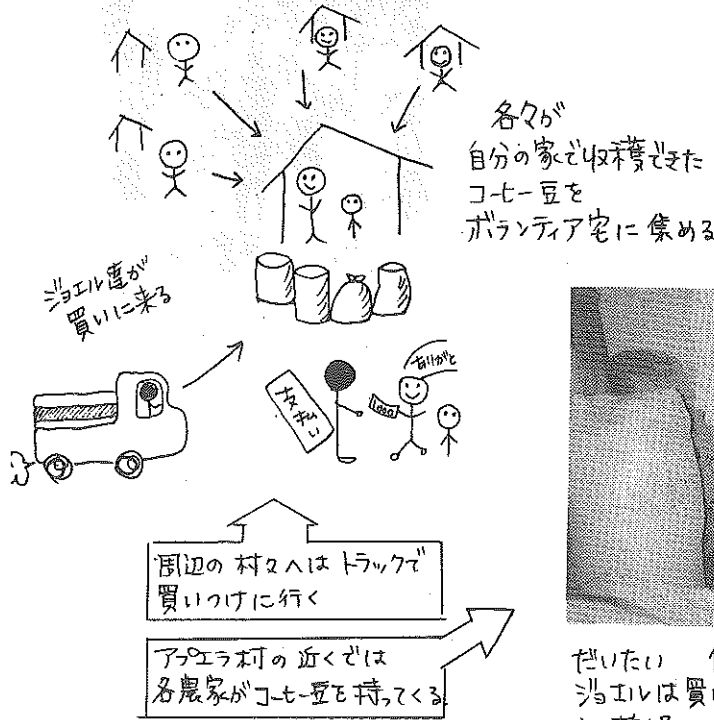 各々が
自分の家で収穫できた
コーヒー豆を
ボランティア宅に集める
ジョエル達が
買いに来る
ありがと
支払い
1000
周辺の村々へはトラックで
買いつけに行く
アプエラ村の近くでは
各農家がコーヒー豆を持ってくる
だいたい
ジョエルは買い